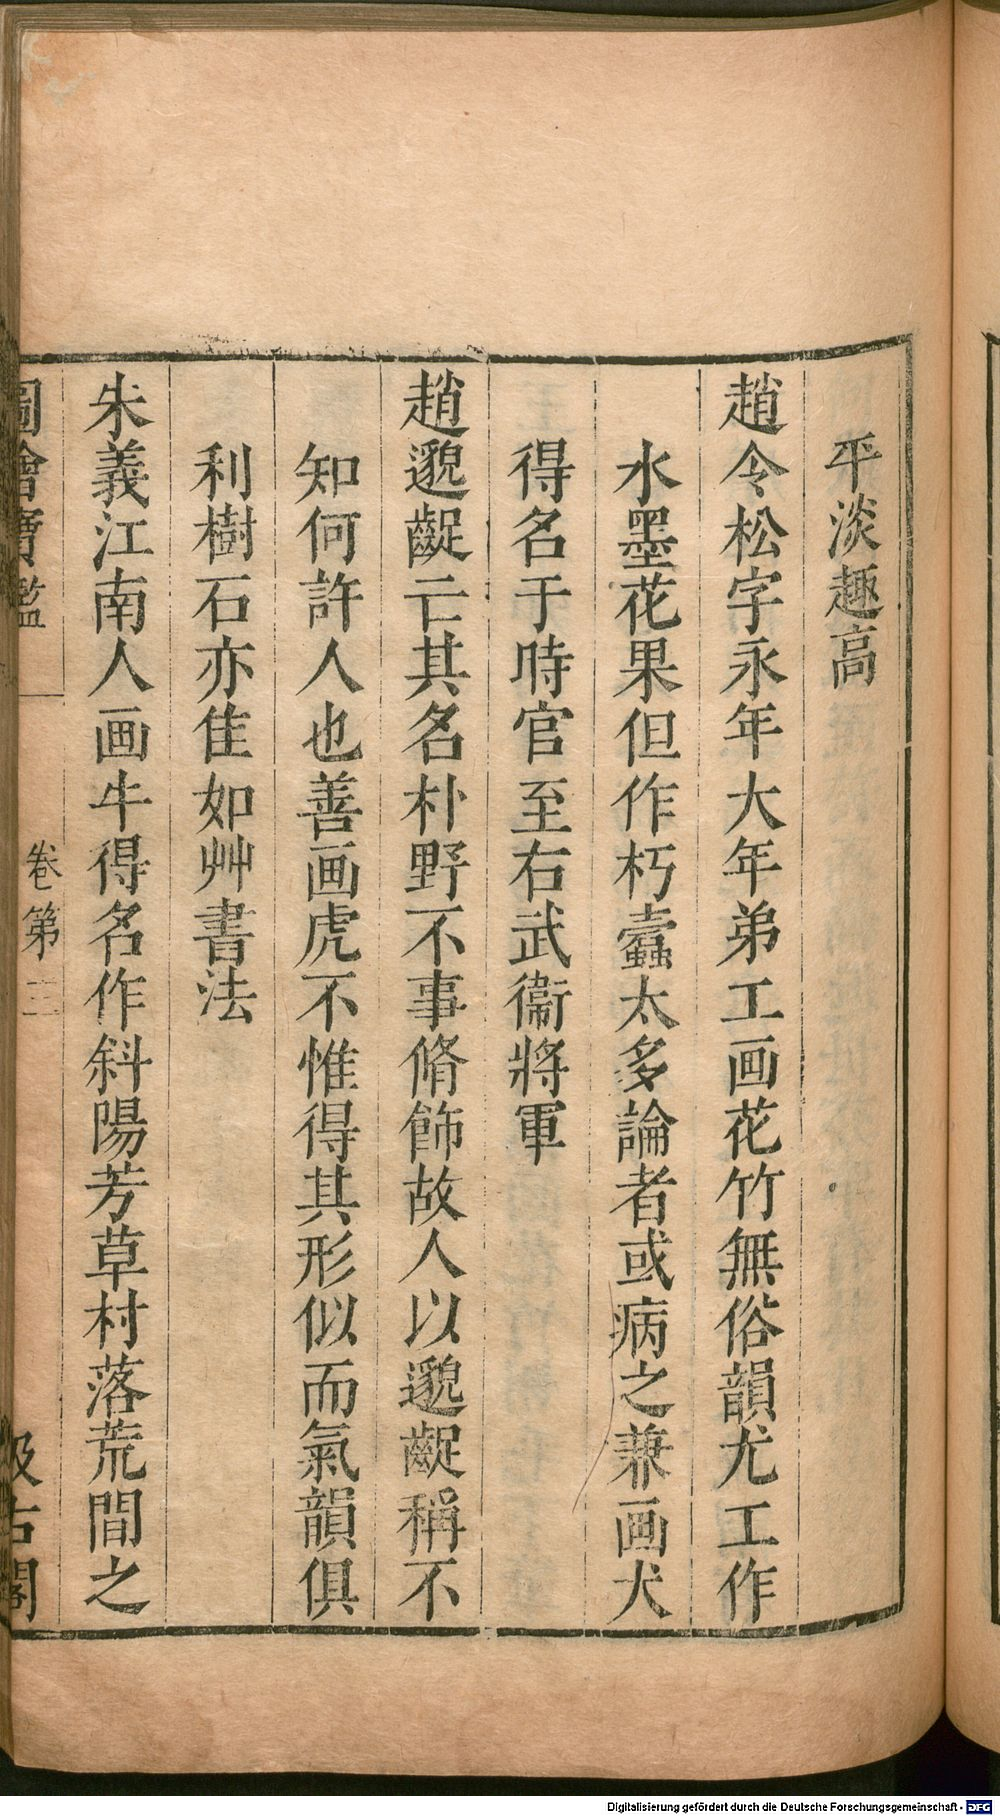 平淡趣高
趙令松字永年大年弟工画花竹無俗韻尤工作
水墨花果但作朽蠹太多論者或病之兼画犬
得名于時官至右武衞將軍
趙邈齪亡其名朴野不事脩飾故人以邈齪稱不
知何許人也善画虎不惟得其形似而氣韻俱
利樹石亦佳如艸書法
朱義江南人画牛得名作斜陽芳草村落荒間之
圖繪寶鑑
卷第三
汲古閣
Digitalisierung gefördert durch die Deutsche Forschungsgemeinschaft - DFG